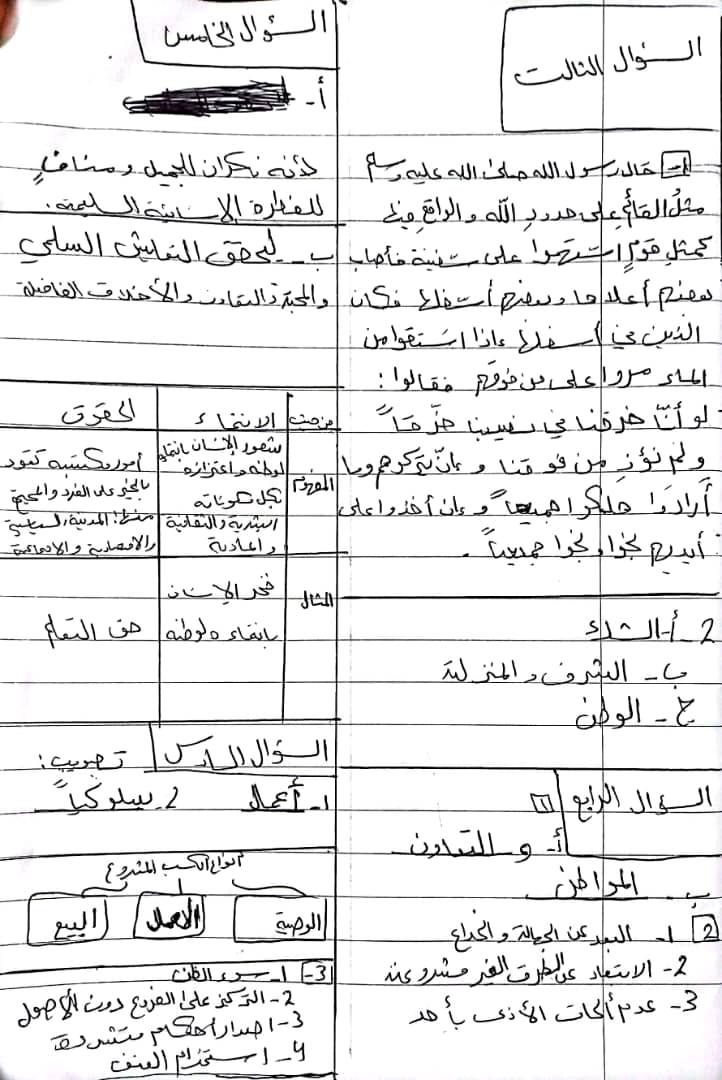 السؤال الثالث
1- قال رسول الله صلى الله عليه وسلم
مثلُ القائم على حدودِ الله والواقع فيها
كمثلِ قومٍ استهموا على سفينة فأصاب
بعضهم أعلاها وبعضهم أسفلها فكان
الذين في أسفلها إذا استقوا من
الماء مروا على من فوقهم فقالوا:
لو أنّا خرقنا في نصيبنا خرقاً
ولم نؤذِ من فوقنا وإن تركوهم وما
أرادوا هلكوا جميعاً وإن أخذوا على
أيديهم نجوا ونجوا جميعاً.
2- أ- الشراء
ب- الشرف والمنزلة
ج- الوطن
السؤال الرابع
1
أ- والتعاون
ب- المواطن
2 1- البعد عن الجهالة والخداع
2- الابتعاد عن الطرق الغير مشروعة
3- عدم ألحاث الأذى بأحد
السؤال الخامس
أ-
لأنه نكران للجميل ومنافٍ
للفطرة الإنسانية السليمة.
ب- ليحقق التعايش السلمي
والمحبة والتعاون والأخلاق الفاضلة
من حيث الانتماء الحقوق
المفهوم
شعور الإنسان بانتمائه
لوطنه واعتزازه
بكل مكوناته
البشرية والثقافية
والمادية
أمور مكتسبة تعود
بالخير على الفرد والمجتمع
منها: المدنية والسياسية
والاقتصادية والاجتماعية
المثال
فخر الإنسان
بانتماءه لوطنه
حق التعلم
السؤال السادس
تصويب:
1- أعمال 2- سلوكياً
أنواع الكسب المشروع
الوصية الأعمال البيع
3- 1- سوء الظن
2- التركيز على الفروع دون الأصول
3- اصدار أحكام متشددة
4- استخدام العنف